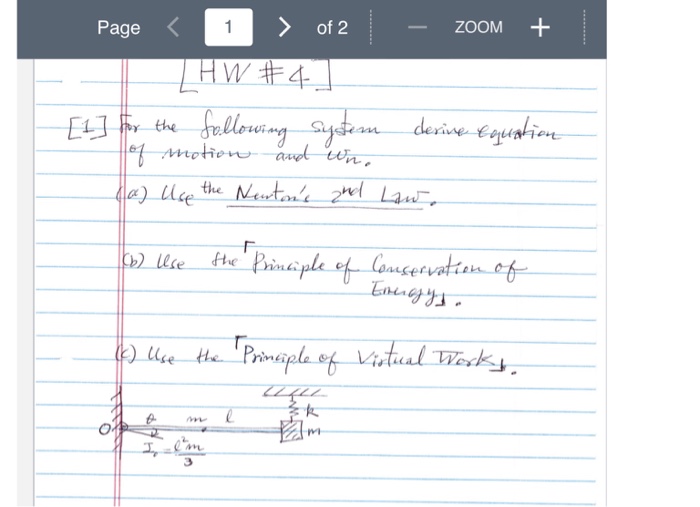 Page < 1 > of 2 — ZOOM +
[HW #4]
[1] For the following system derive equation
of motion and ωn.
(a) Use the Newton's 2nd Law.
(b) Use the「Principle of Conservation of
Energy」.
(c) Use the「Principle of Virtual Work」.
k
θ m l
O m
I = l²m
3